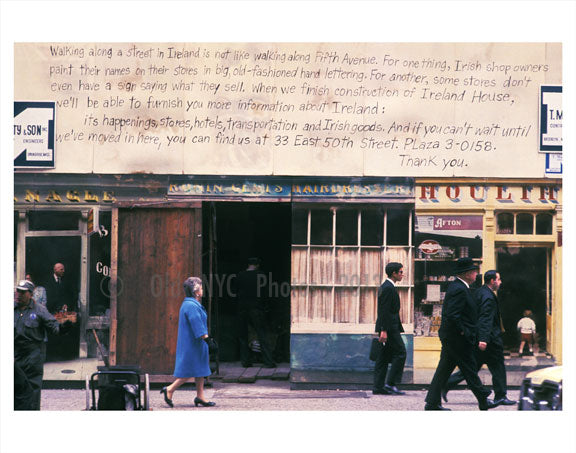 Walking along a street in Ireland is not like walking along Fifth Avenue. For one thing, Irish shop owners
paint their names on their stores in big, old-fashioned hand lettering. For another, some stores don't
even have a sign saying what they sell. When we finish construction of Ireland House,
we'll be able to furnish you more information about Ireland:
its happenings, stores, hotels, transportation and Irish goods. And if you can't wait until
we've moved in here, you can find us at 33 East 50th Street. PLaza 3-0158.
Thank you.
TY & SON INC
ENGINEERS
T.M
NAGLE
HAIRDRESSER
HOULIH
AFTON
Co